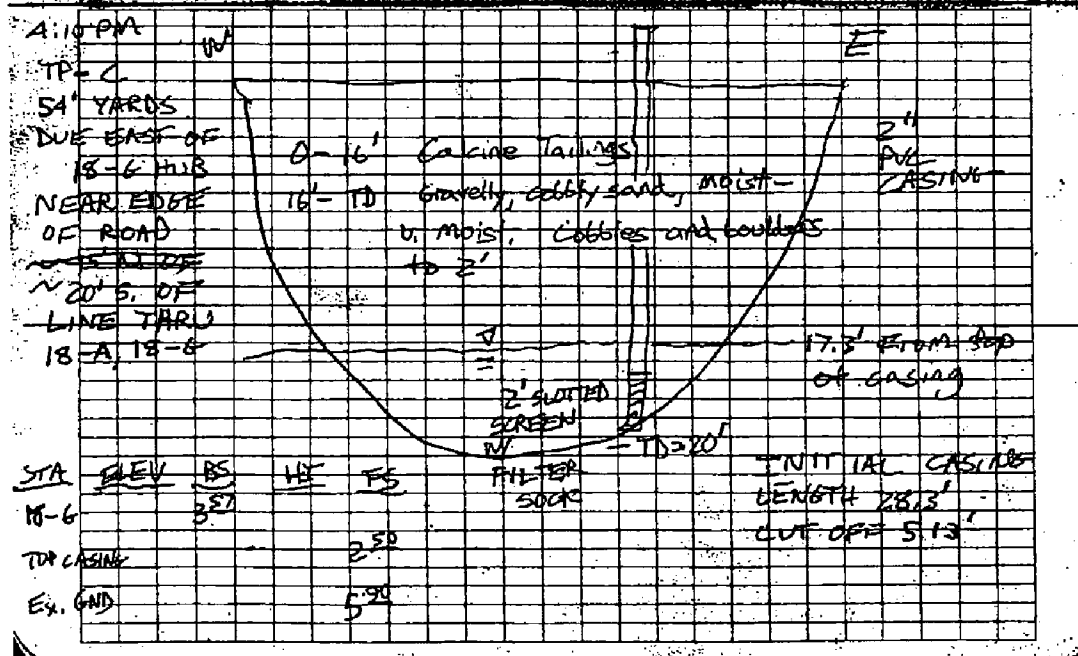 4:10 PM
TP-C
54' YARDS
DUE EAST OF
18-G HUB
NEAR EDGE
OF ROAD
~ 20' S. OF
LINE THRU
18-A, 18-G
W
E
0-16' Calcine Tailings
16'- TD Gravelly, cobbly sand, moist-
v. moist. Cobbles and boulders
to 2'
2"
PVC
CASING
17.3' From top
of casing
2' SLOTTED
SCREEN
W/
FILTER
SOCK
TD=20'
INITIAL CASING
LENGTH 28.3'
CUT OFF 5.13'
STA ELEV BS HI FS
18-G 3.57
TOP CASING 2.50
Ex. GND 5.90